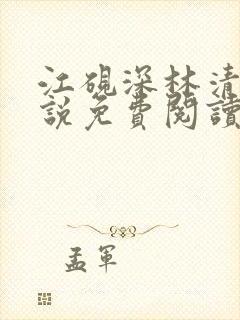 江硯深林清
說免費閱讀
孟軍